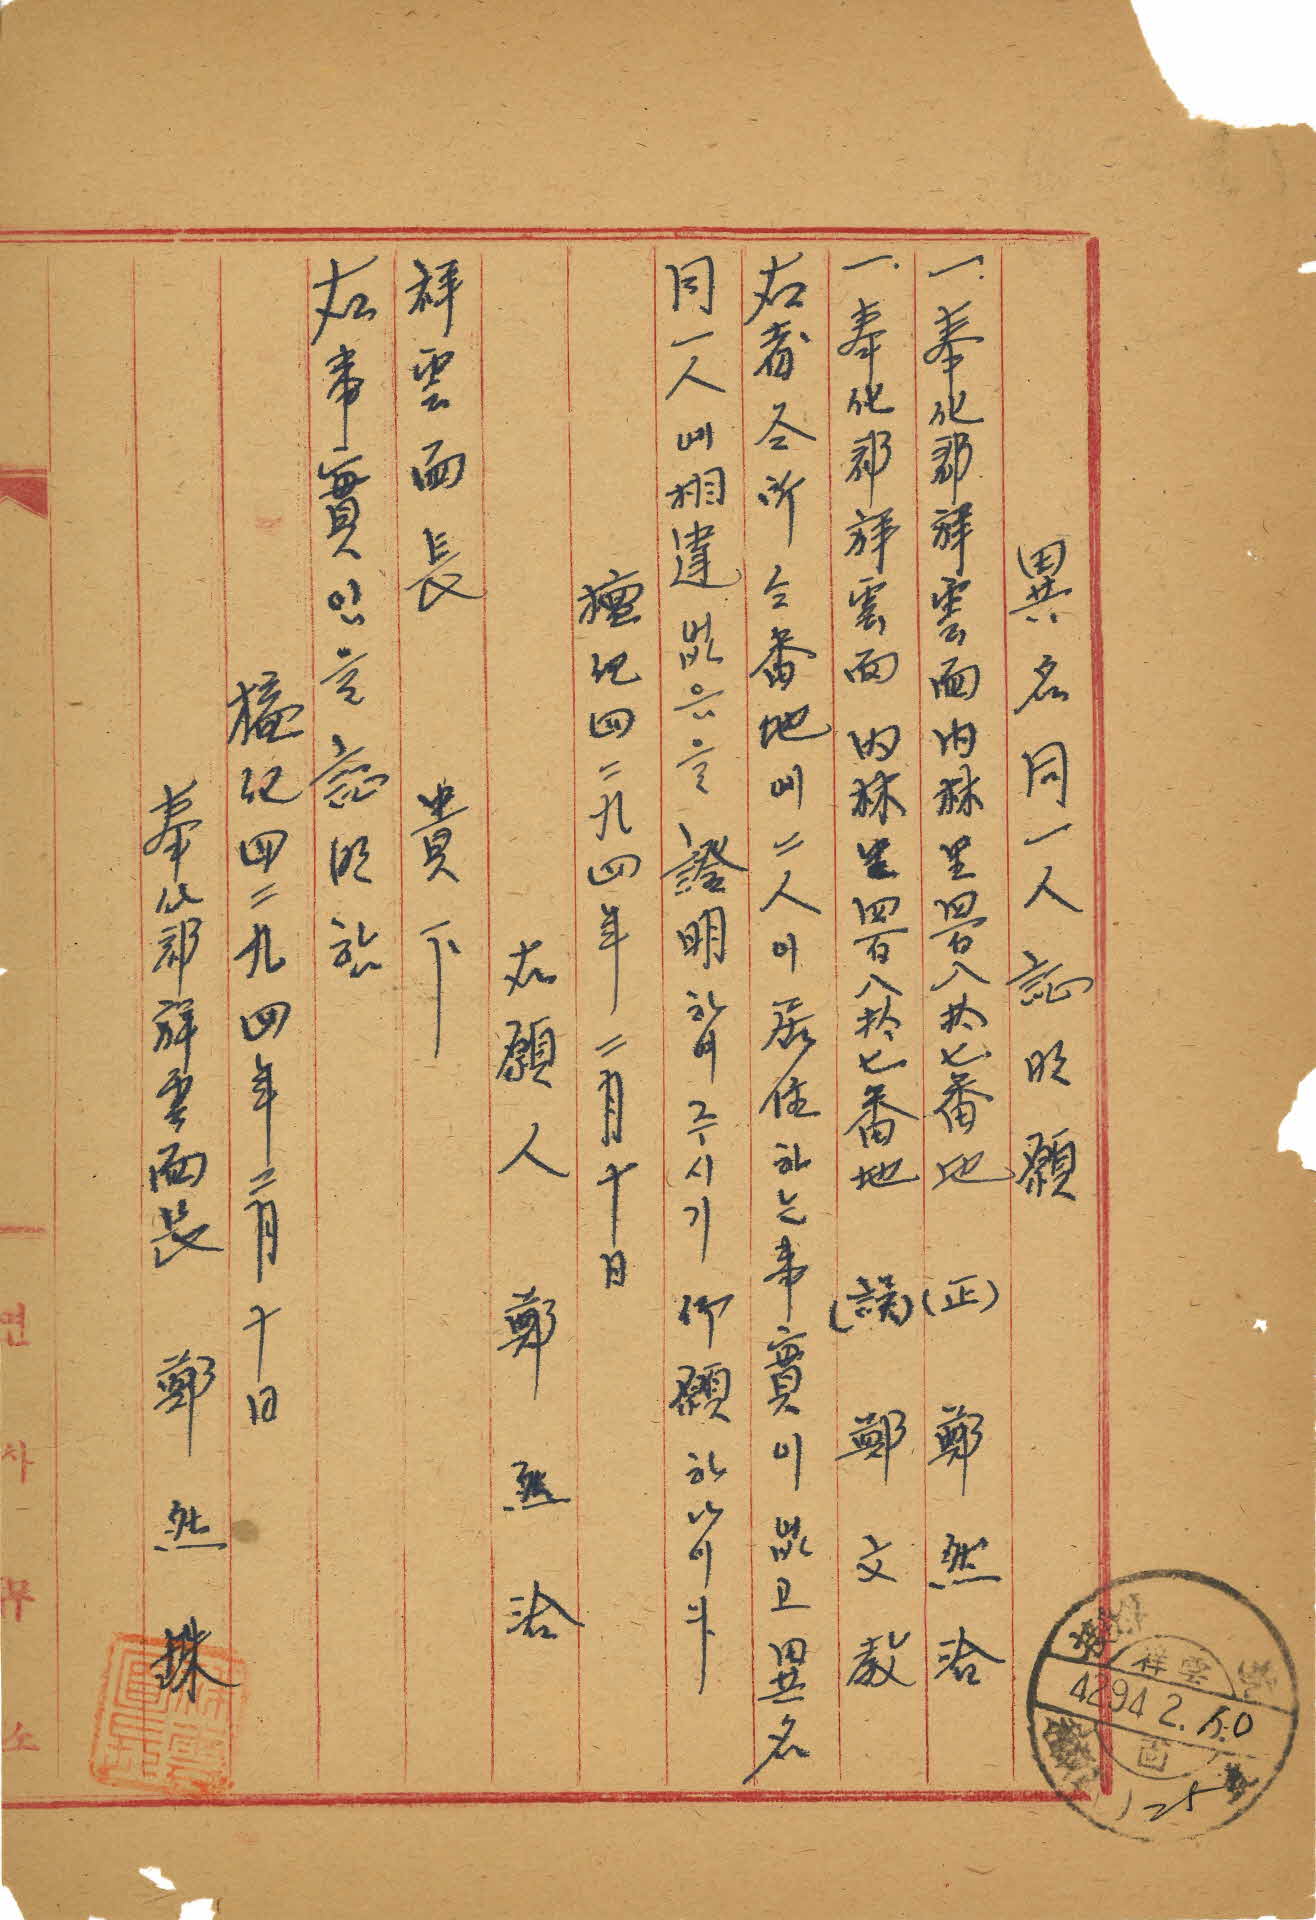 異名同一人證明願
一. 奉化郡祥雲面內林里四百八拾七番地 (正) 鄭然洽
一. 奉化郡祥雲面內林里四百八拾七番地 (誤) 鄭文敎
右者 住所 仝番地에 二人이 居住하는 事實이 없고 異名
同一人에 相違 없음을 證明하여 주시기 仰願하나이다
檀紀四二九四年 二月十日
右願人 鄭然洽
祥雲面長 貴下
右事實임을 証明함
檀紀四二九四年二月十日
奉化郡祥雲面長 鄭然銖
祥雲
4294 2.
面
25
면 사 무 소